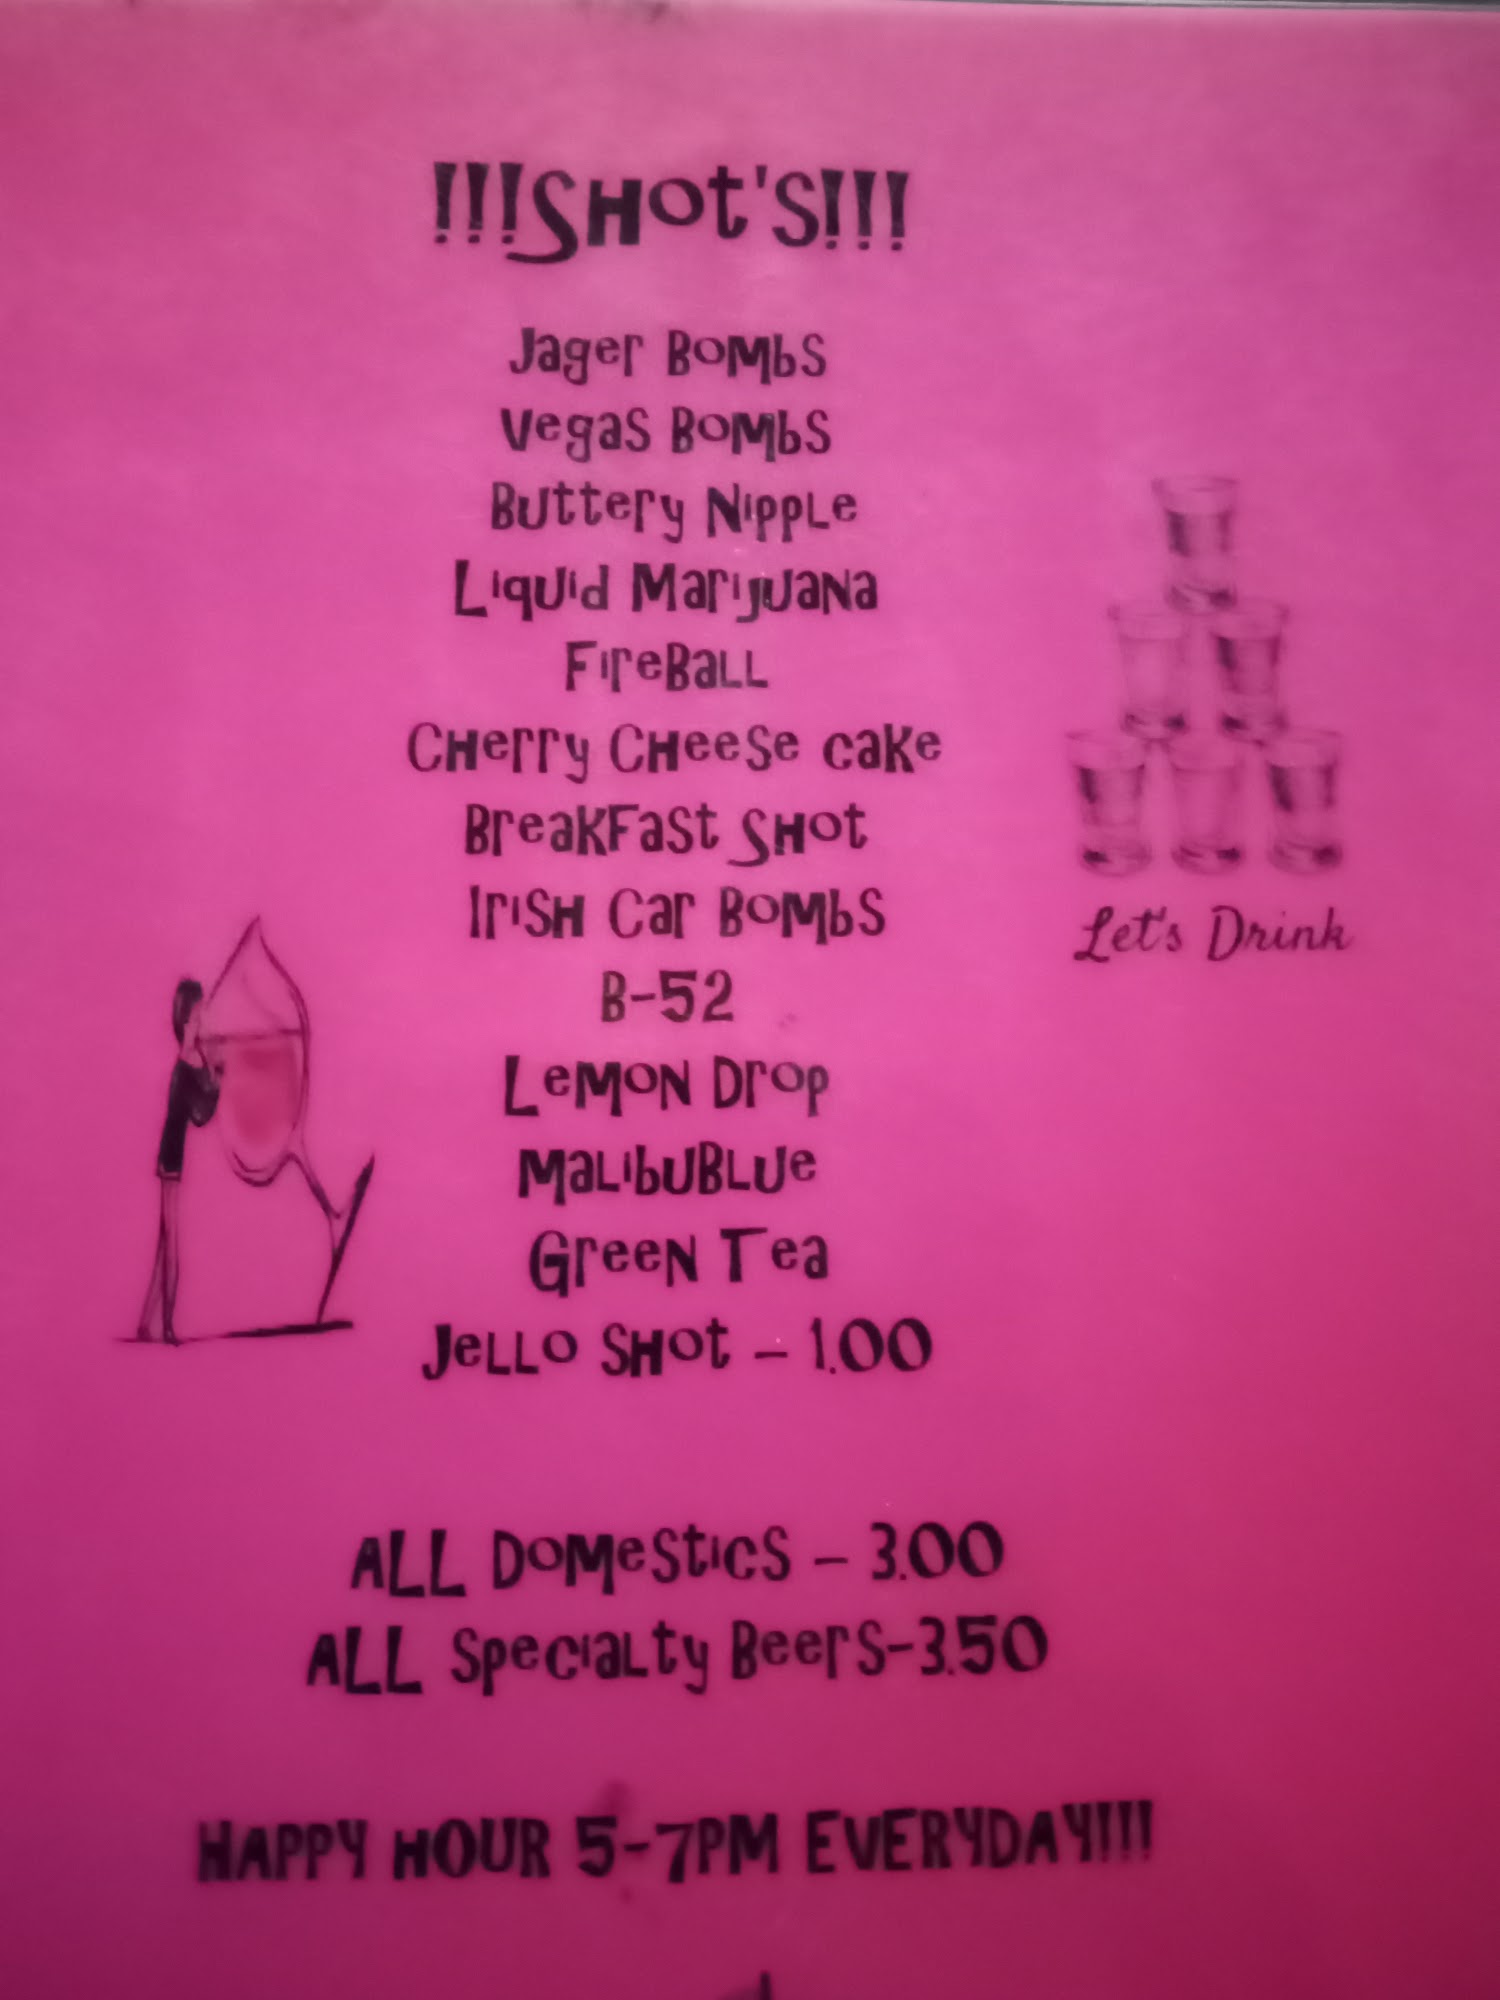 !!!SHOT'S!!!
Jager Bombs
Vegas Bombs
Buttery Nipple
Liquid Marijuana
FireBall
Cherry Cheese cake
Breakfast Shot
Irish Car Bombs
B-52
Lemon Drop
MalibuBlue
Green Tea
Jello Shot - 1.00
Let's Drink
ALL Domestics - 3.00
ALL Specialty Beers-3.50
HAPPY HOUR 5-7PM EVERYDAY!!!